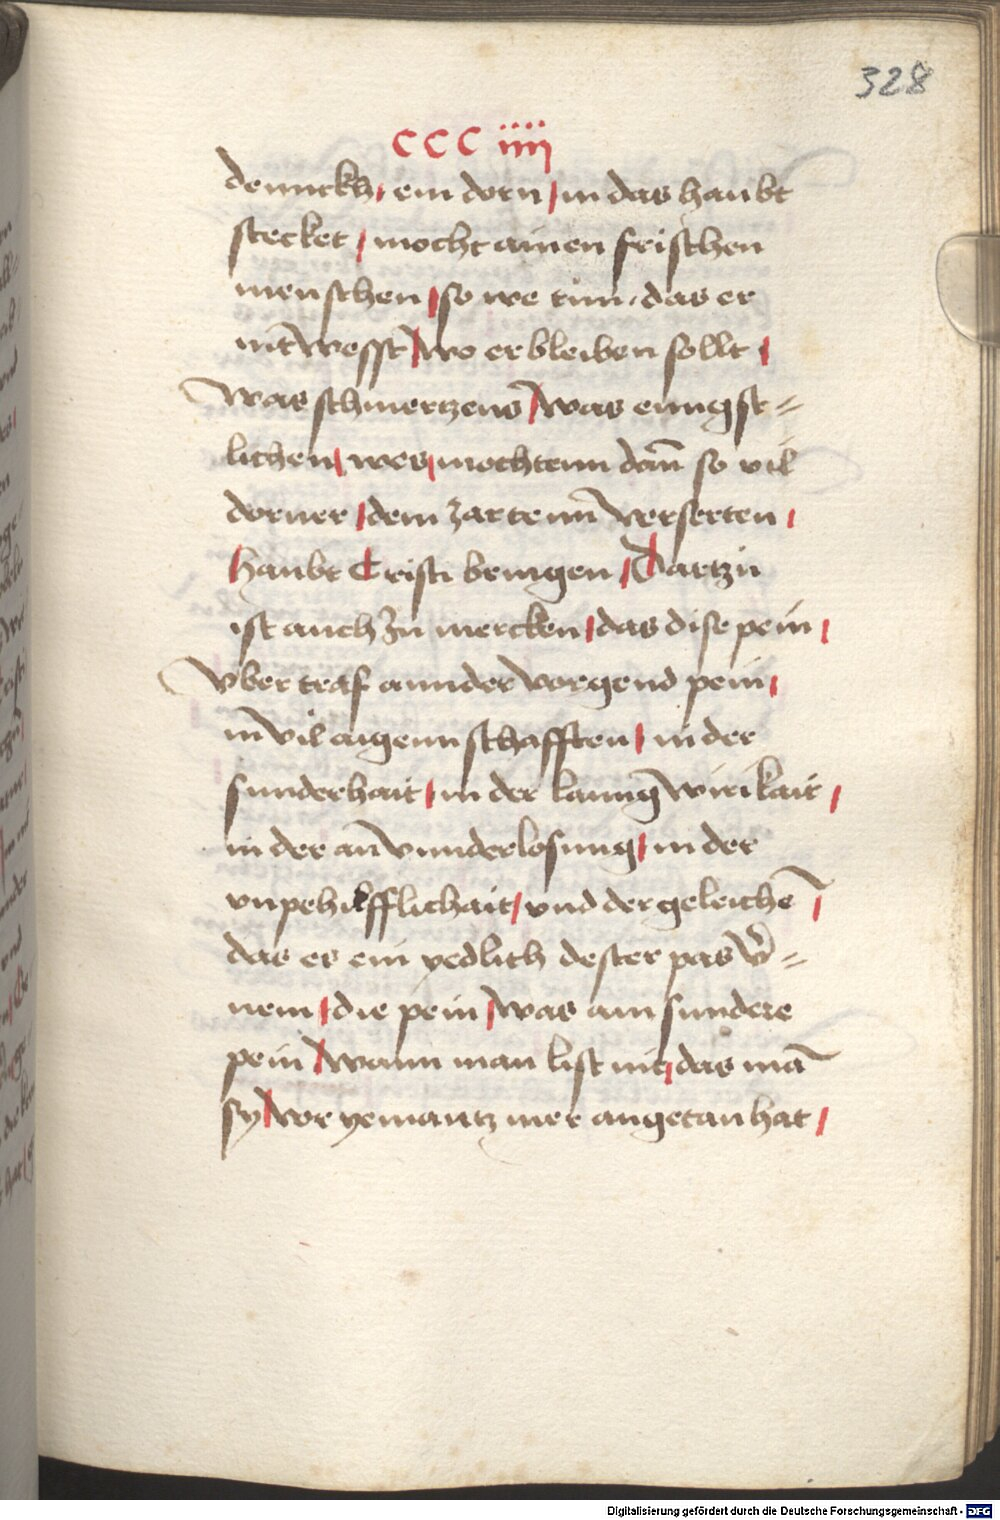 328
CCC iiij
dennckh, ein dorn / in das haubt
stecket / mocht ainen frischen
menschen / so we tun, das er
nit wesst / wo er bleiben sollt /
was schmertzens / was enngst=
lichen / wes / mochtenn dañ so vil
dorner / dem zartenn verserten /
haubt Cristi bringen / Dartzu
ist auch zu mercken / das dise pein /
vber traf annder vorgend pein /
in vil aigennschafften / in der
sunderhait / in der lanng wirikait /
in der añ vnnderlosung / in der
vnpehilfflichait / vnd der geleichē /
das es ein yedlich dester pas v̄=
nem / die pein / was ain sundere
pein / wann man list nit / das mā
sy / vor yemantz mer angetan hat /
Digitalisierung gefördert durch die Deutsche Forschungsgemeinschaft - DFG